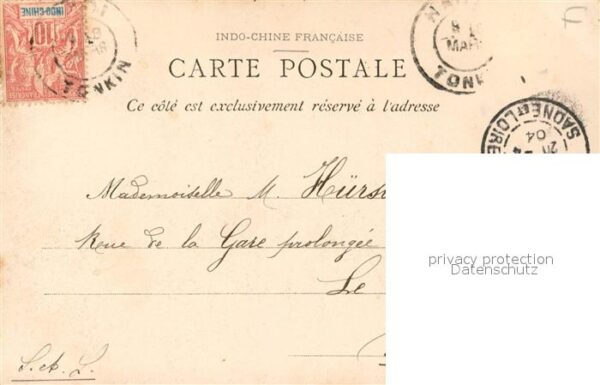 INDO-CHINE FRANÇAISE
CARTE POSTALE
Ce côté est exclusivement réservé à l'adresse
INDO-CHINE
10
TONKIN
MARS
TONK
SAONE ET LOIRE
04
F
Mademoiselle M. Hürs
Rue de la Gare prolongée
Le
privacy protection
Datenschutz
S.A.L.